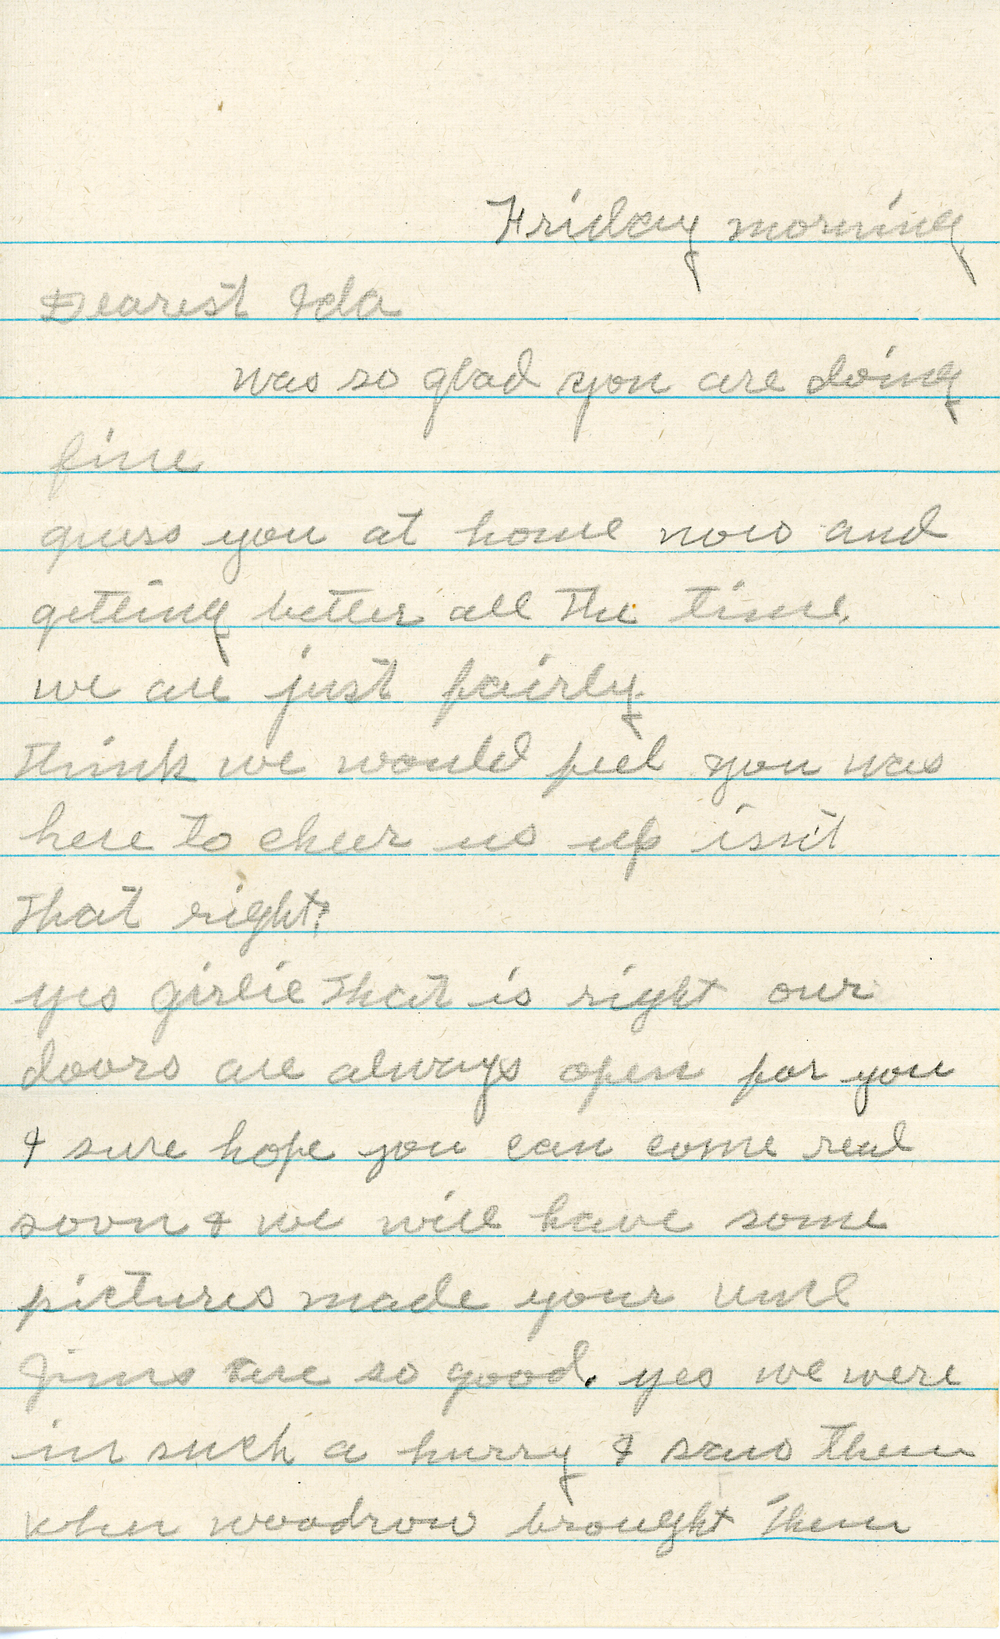 Friday morning
Dearest Ida
was so glad you are doing
fine
guess you at home now and
getting better all the time.
we are just fairly
think we would feel you was
here to cheer us up issn't
that right?
yes girlie that is right our
doors are always open for you
& sure hope you can come real
soon & we will have some
pictures made your uncl
Jims are so good. yes we were
in such a hurry & saw them
when woodrow brought them